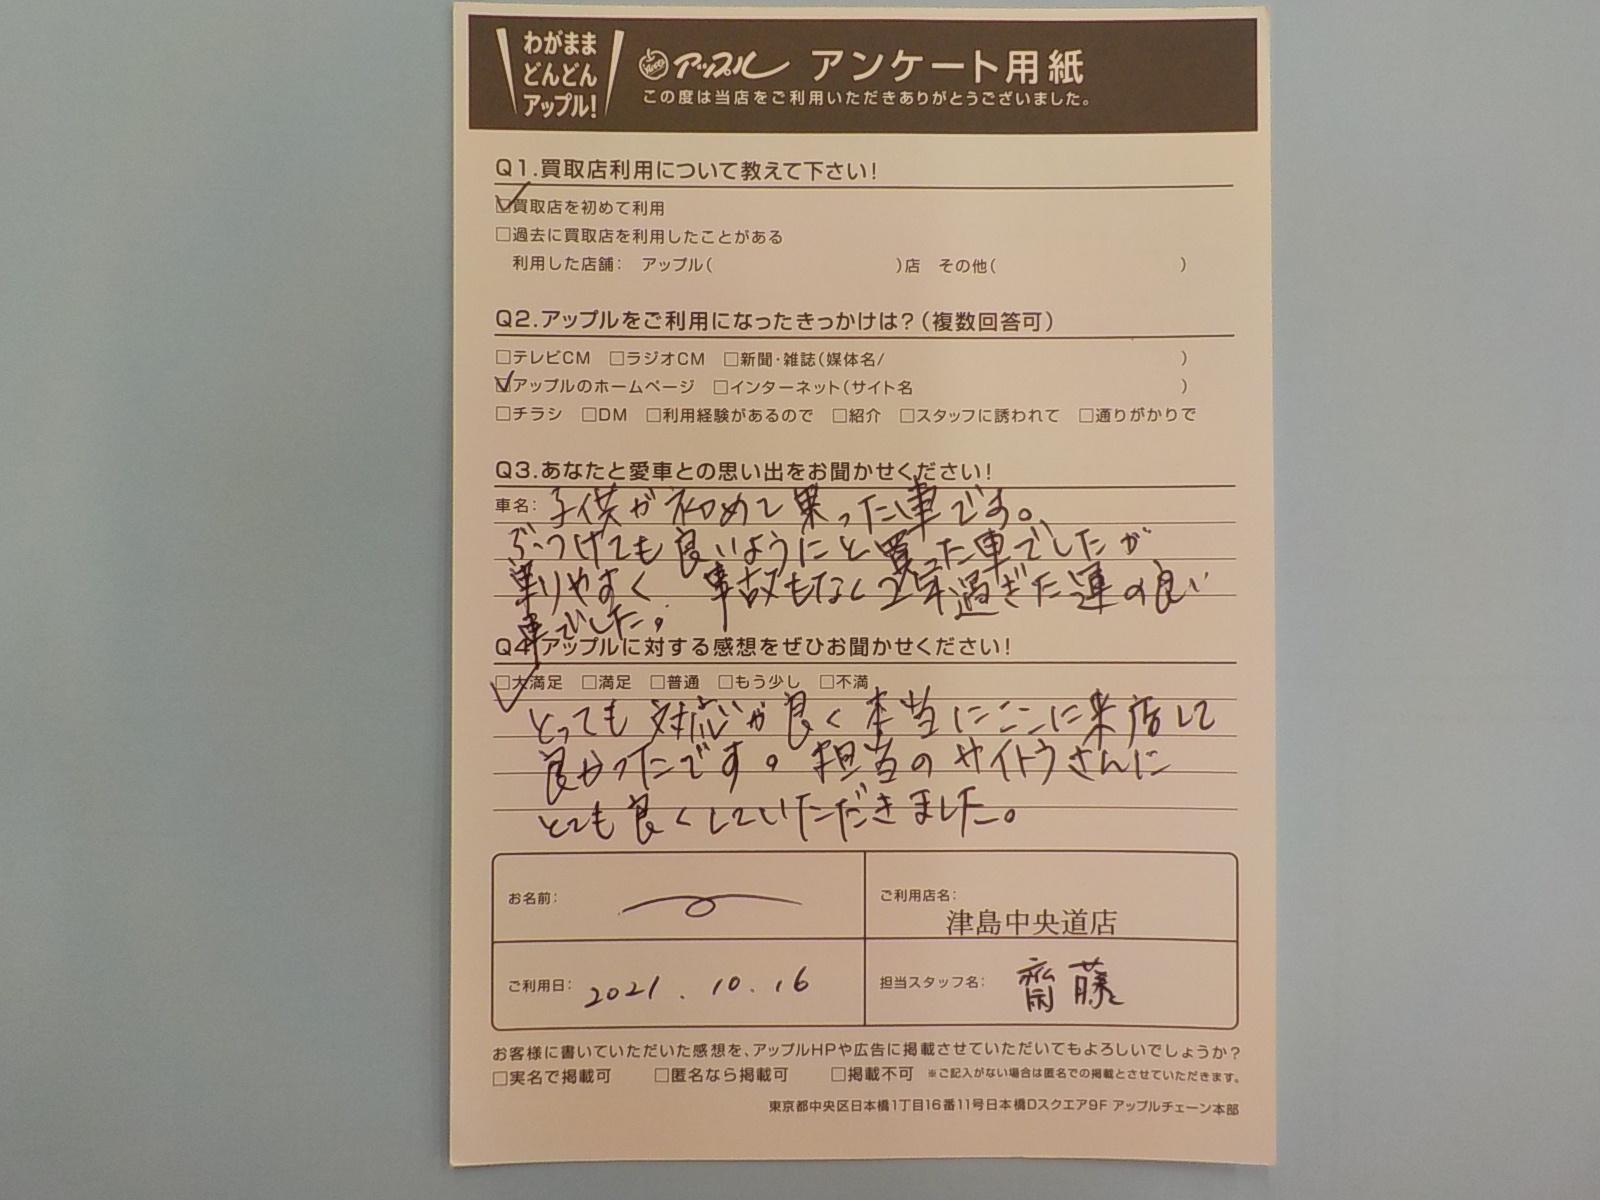 わがまま
どんどん
アップル!
アップル アンケート用紙
この度は当店をご利用いただきありがとうございました。
Q1.買取店利用について教えて下さい!
☑買取店を初めて利用
□過去に買取店を利用したことがある
利用した店舗: アップル( )店 その他( )
Q2.アップルをご利用になったきっかけは?(複数回答可)
□テレビCM □ラジオCM □新聞・雑誌(媒体名/ )
☑アップルのホームページ □インターネット(サイト名 )
□チラシ □DM □利用経験があるので □紹介 □スタッフに誘われて □通りがかりで
Q3.あなたと愛車との思い出をお聞かせください!
車名: 子供が初めて乗った車です。
ぶつけても良いようにと買った車でしたが
乗りやすく 事故もなく2年過ぎた運の良い
車でした。
Q4.アップルに対する感想をぜひお聞かせください!
☑大満足 □満足 □普通 □もう少し □不満
とっても対応が良く本当にここに来店して
良かったです。担当のサイトウさんに
とても良くしていただきました。
お名前:
ご利用店名:
津島中央道店
ご利用日: 2021.10.16
担当スタッフ名: 齋藤
お客様に書いていただいた感想を、アップルHPや広告に掲載させていただいてもよろしいでしょうか?
□実名で掲載可 □匿名なら掲載可 □掲載不可 ※ご記入がない場合は匿名での掲載とさせていただきます。
東京都中央区日本橋1丁目16番11号日本橋Dスクエア9F アップルチェーン本部